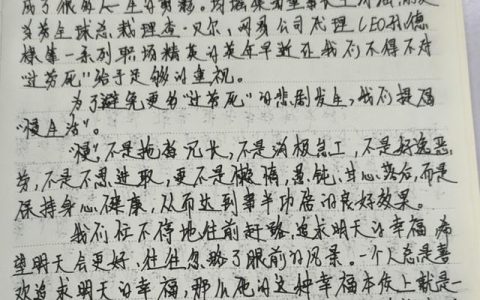 成了很多人一生的
麦当劳全球总裁理查·贝尔,网易公司代理CEO孙德
棣等一系列职场精英的英年早逝让我们不得不对
“过劳死”给予足够的重视。
为了避免更多“过劳死”的悲剧发生,我们提倡
“慢生活”。
“慢”,不是拖沓冗长,不是消极怠工,不是好逸恶
劳,不是不思进取,更不是懒惰,愚钝,甘心落后,而是
保持身心健康,从而达到事半功倍的良好效果。
我们迫不及待地往前赶路,追求明天的幸福,希
望明天会更好,往往忽略了眼前的风景。一个人总是喜
欢追求明天的幸福,那么他的这种幸福本质上就是一